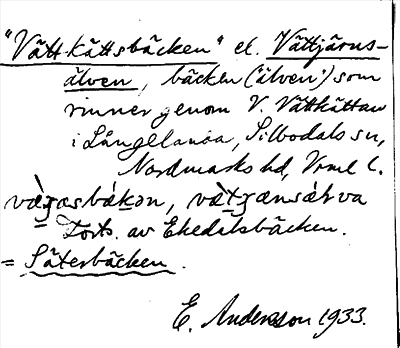 "Vättkättsbäcken" el. Vättjärns-
älven, bäcken ('älven') som
rinner genom V. Vättkättan
i Långelanda, Silbodals sn,
Nordmarks hd, Vrml l.
Forts. av Ekedalsbäcken.
= Säterbäcken.
E. Anderson 1933.